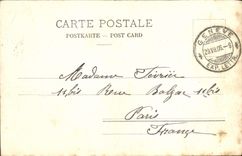 CARTE POSTALE
POSTKARTE - POST CARD
GENÈVE
EXP. LETTR.
Madame Février
11 bis Rue Balzac 11 bis
Paris
France